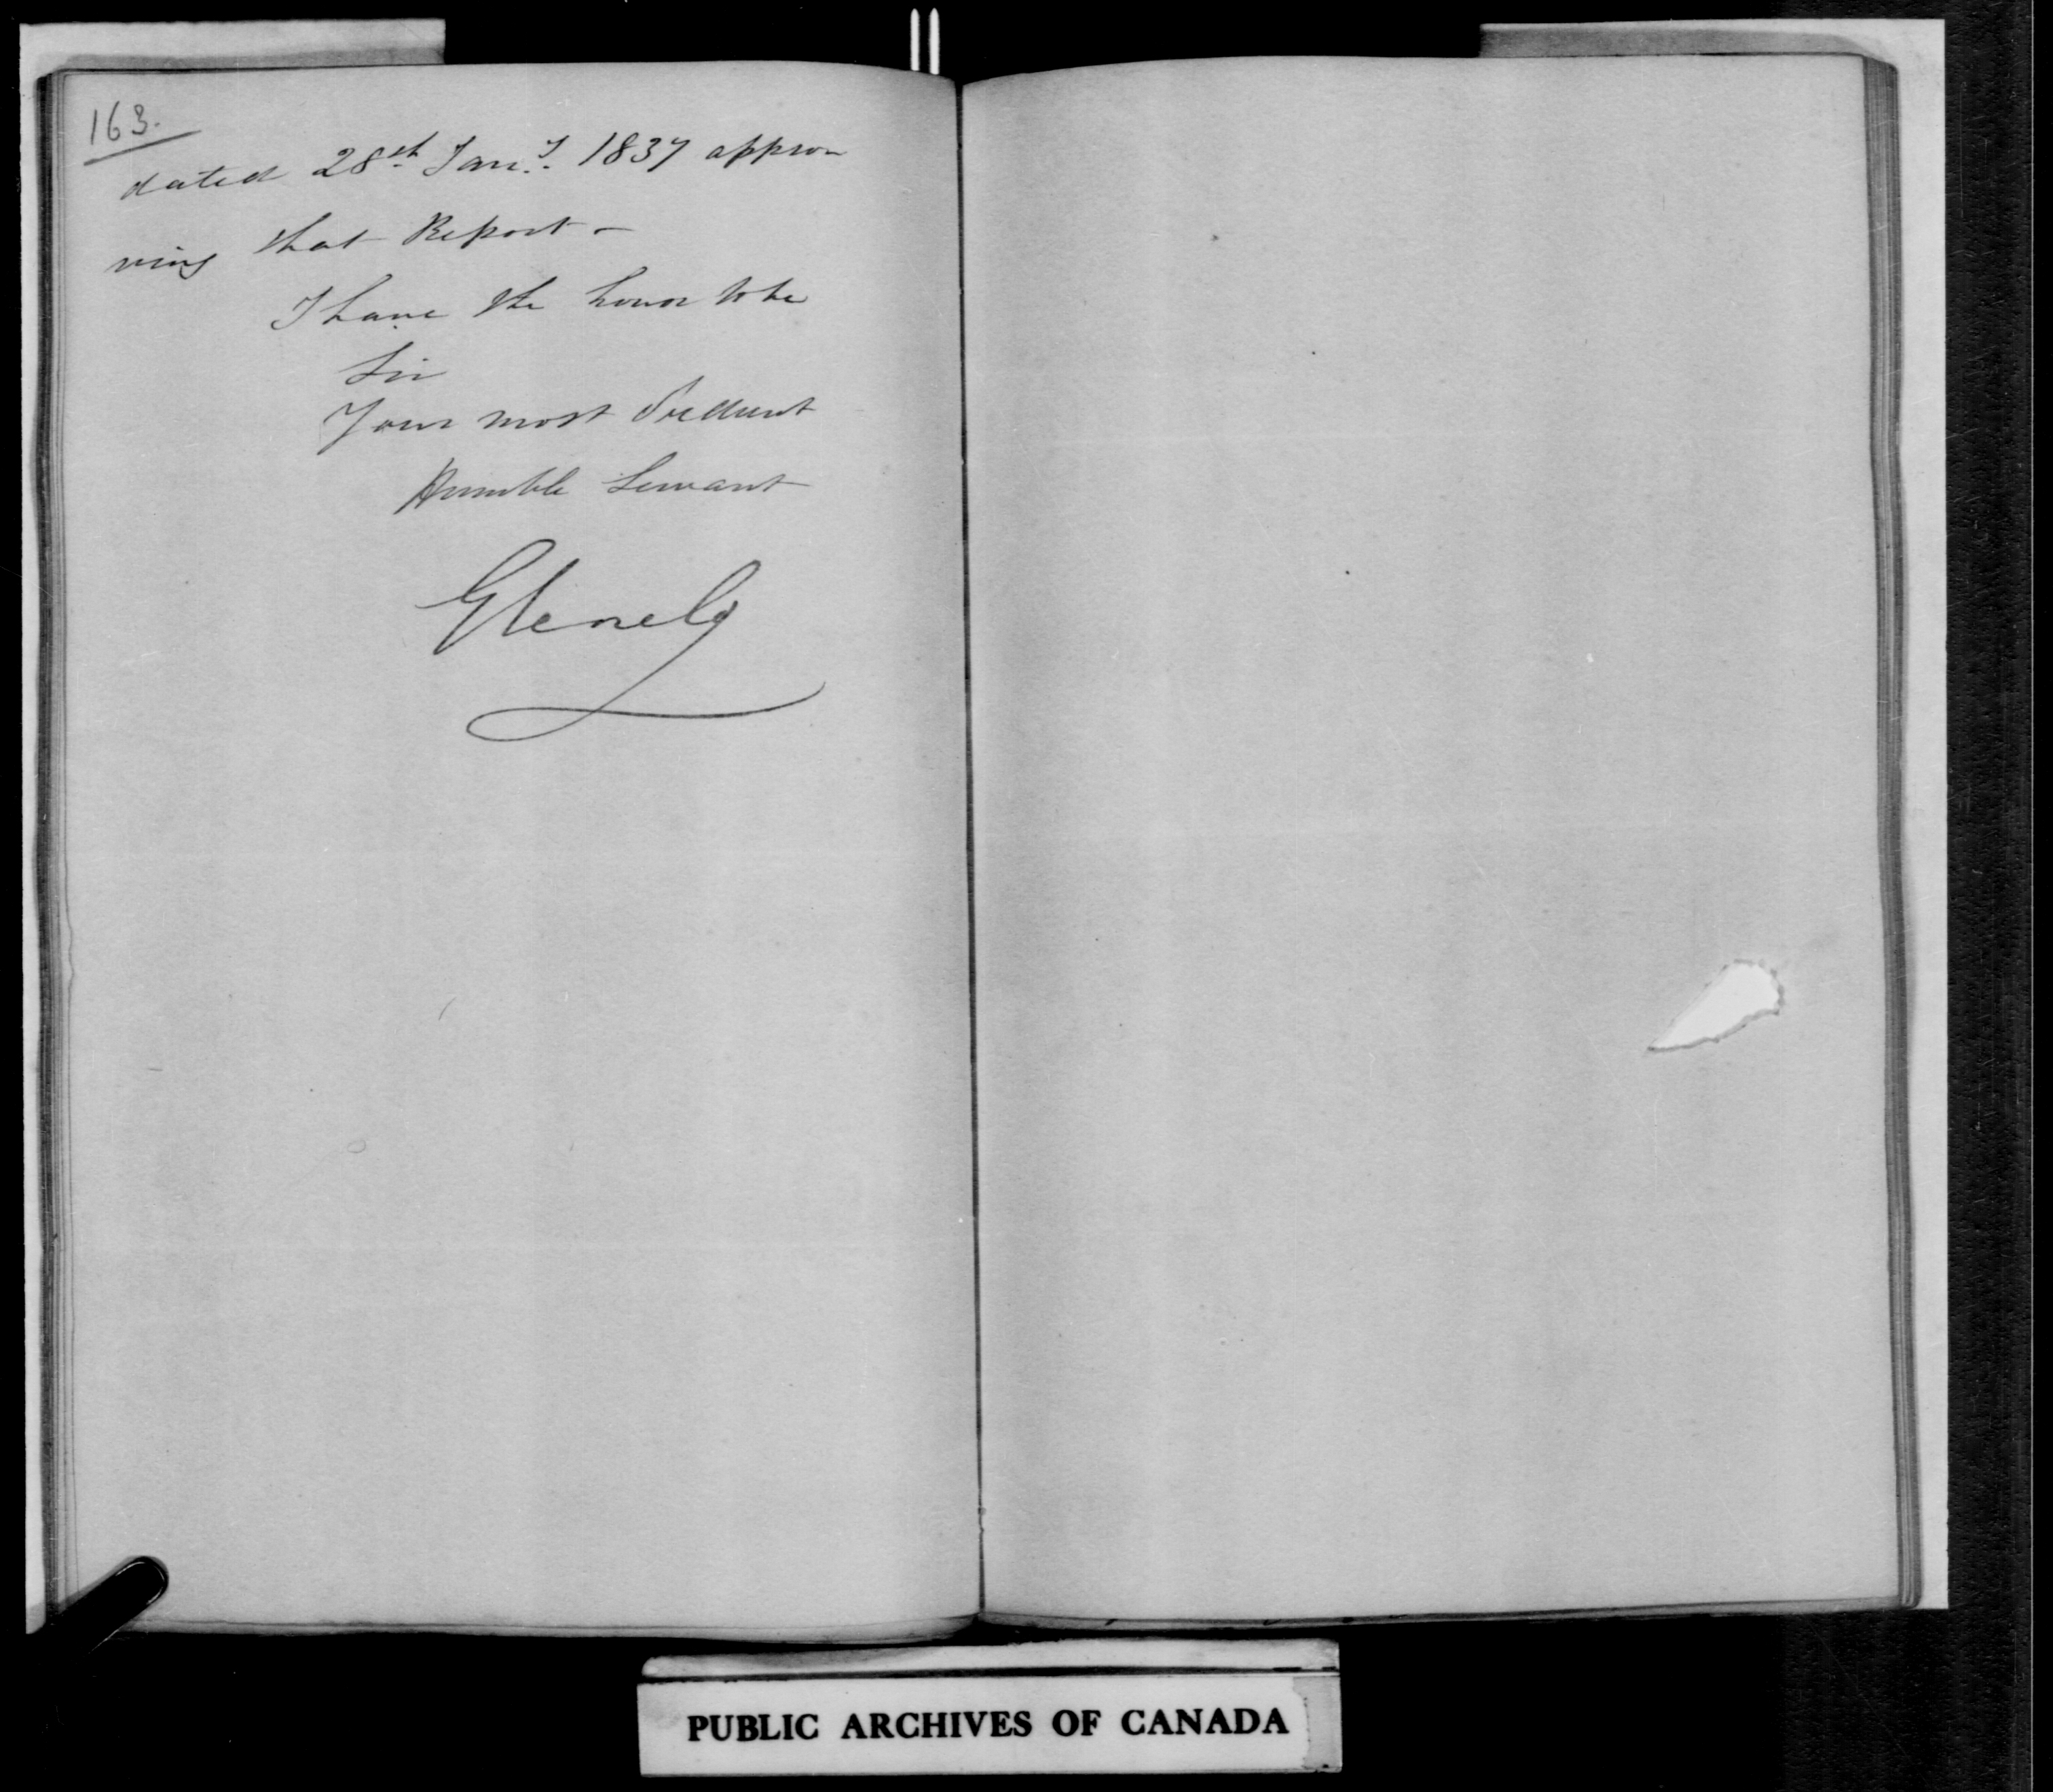 163.
dated 28th Jany. 1837 appro
ving that Report -
I have the honor to be
Sir
Your most Obedient
Humble Servant
Glenelg
PUBLIC ARCHIVES OF CANADA